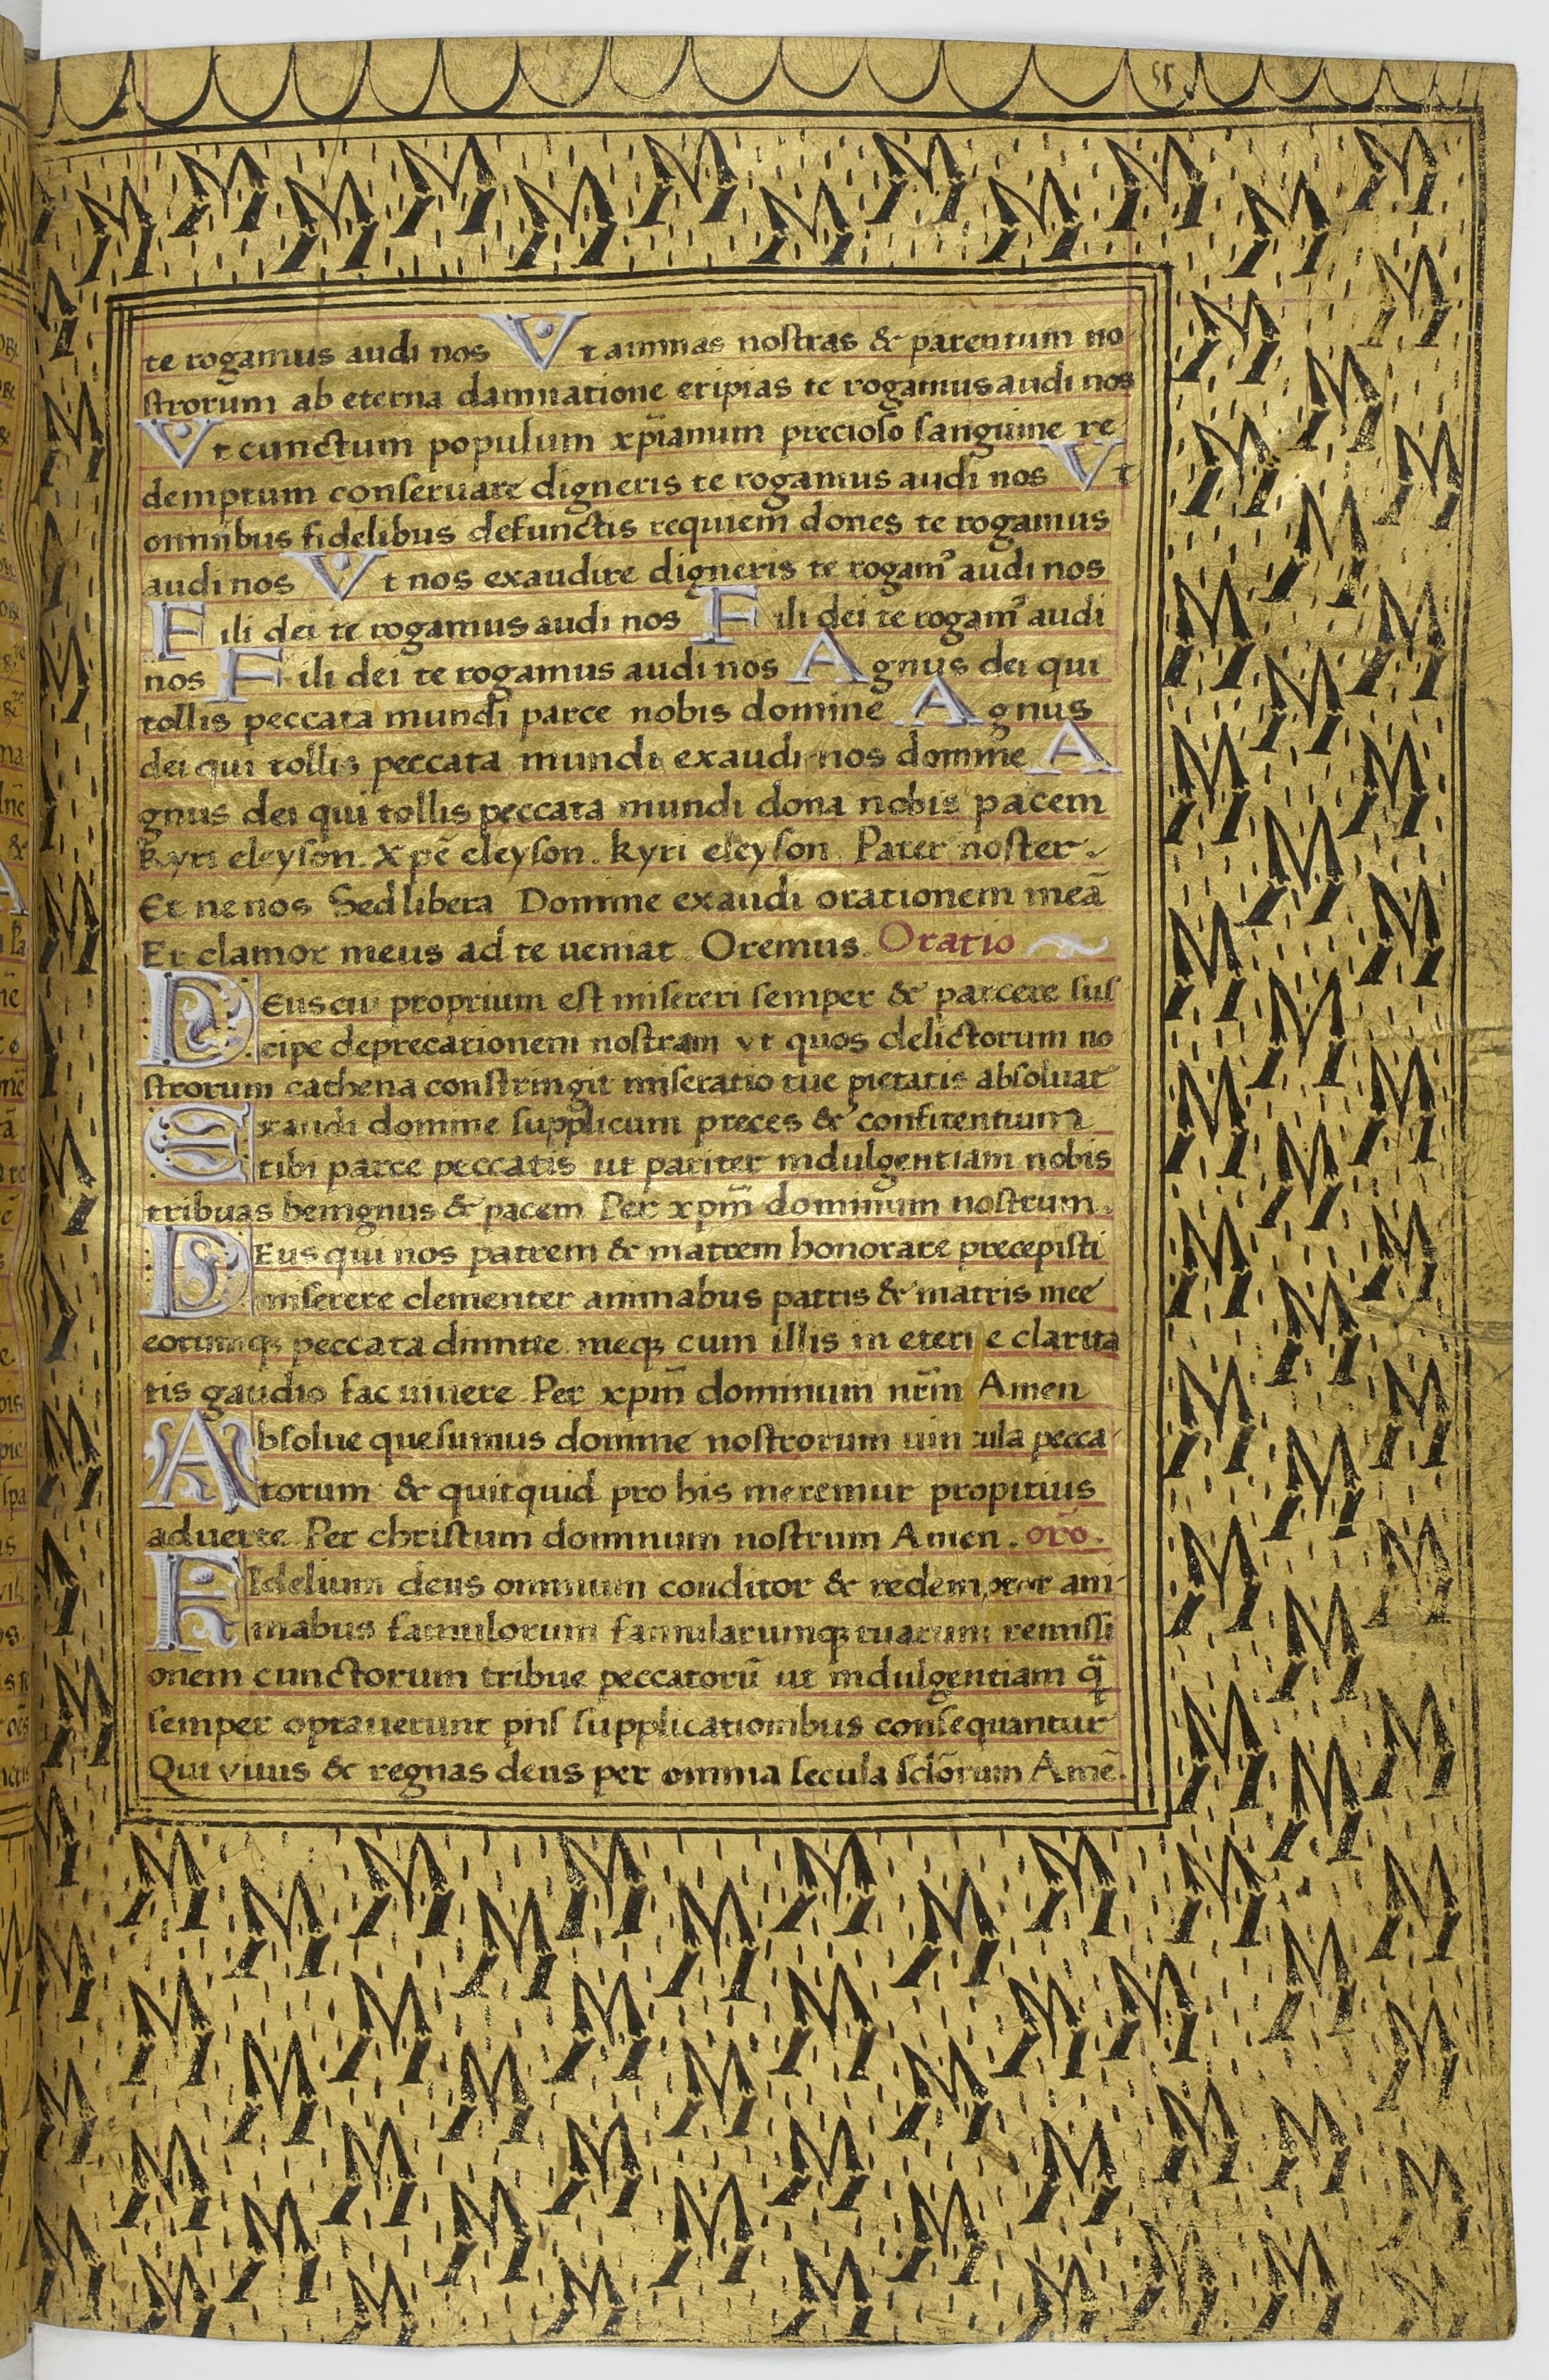 55
te rogamus audi nos Vt animas nostras & parentum no
strorum ab eterna damnatione eripias te rogamus audi nos
Vt cunctum populum xp̄ianum precioso sanguine re
demptum conseruare digneris te rogamus audi nos Vt
omnibus fidelibus defunctis requiem dones te rogamus
audi nos Vt nos exaudire digneris te rogamꝰ audi nos
Fili dei te rogamus audi nos Fili dei te rogamꝰ audi
nos Fili dei te rogamus audi nos Agnus dei qui
tollis peccata mundi parce nobis domine Agnus
dei qui tollis peccata mundi exaudi nos domine A
gnus dei qui tollis peccata mundi dona nobis pacem
kyri eleyson. Xpē eleyson. kyri eleyson. Pater noster.
Et ne nos Sed libera Domine exaudi orationem meā
Et clamor meus ad te ueniat. Oremus. Oratio
DEus cui proprium est misereri semper & parcere sus
cipe deprecationem nostram vt quos delictorum no
strorum cathena constringit miseratio tue pietatis absoluat
Exaudi domine supplicum preces & confitentium
tibi parce peccatis ut pariter indulgentiam nobis
tribuas benignus & pacem Per xpm̄ dominum nostrum.
DEus qui nos patrem & matrem honorare precepisti
miserere clementer animabus patris & matris mee
eorumqꝫ peccata dimitte meqꝫ cum illis in eterne clarita
tis gaudio fac uiuere Per xpm̄ dominum nr̄m Amen
Absolue quesumus domine nostrorum uincula pecca
torum & quitquid pro his meremur propitius
aduerte. Per christum dominum nostrum Amen. orō.
FIdelium deus omnium conditor & redemptor ani
mabus famulorum famularumqꝫ tuarum remissi
onem cunctorum tribue peccatorū ut indulgentiam q̄
semper optauerunt piis supplicationibus consequantur
Qui viuis & regnas deus per omnia secula sclōrum Amē.